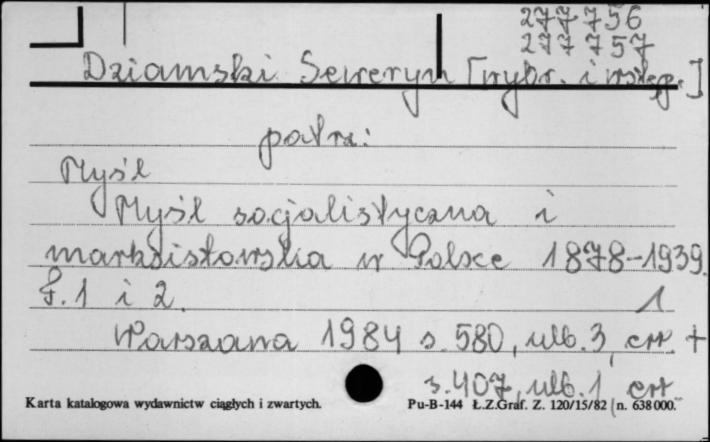 277756
277757
Dziamski Seweryn [wybr. i wstęp.]
patrz:
Myśl
Myśl socjalistyczna i
marksistowska w Polsce 1878-1939.
T. 1 i 2. 1
Warszawa 1984 s. 580, nlb. 3, err. +
s. 407, nlb. 1, err
Karta katalogowa wydawnictw ciągłych i zwartych. Pu-B-144 Ł.Z.Graf. Z. 120/15/82 n. 638000.